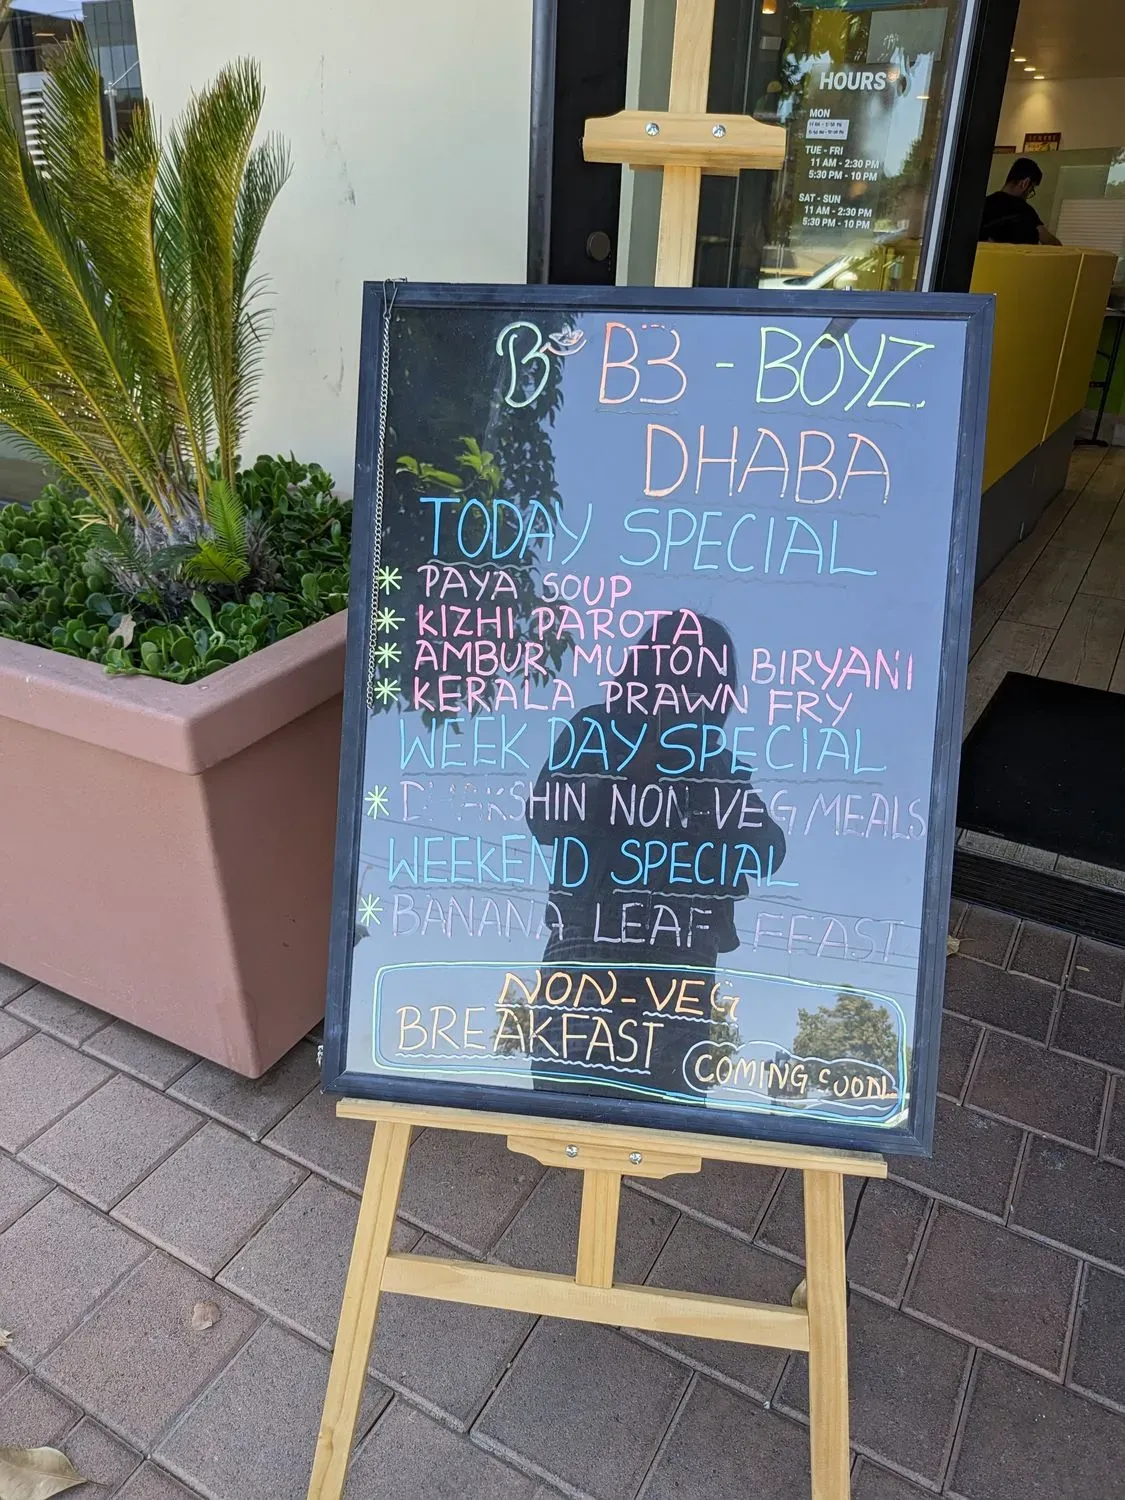 HOURS
MON
TUE - FRI
11 AM - 2:30 PM
5:30 PM - 10 PM
SAT - SUN
11 AM - 2:30 PM
5:30 PM - 10 PM
B B3 - BOYZ
DHABA
TODAY SPECIAL
* PAYA SOUP
* KIZHI PAROTA
* AMBUR MUTTON BIRYANI
* KERALA PRAWN FRY
WEEK DAY SPECIAL
* DHAKSHIN NON-VEG MEALS
WEEKEND SPECIAL
* BANANA LEAF FEAST
NON-VEG
BREAKFAST
COMING SOON